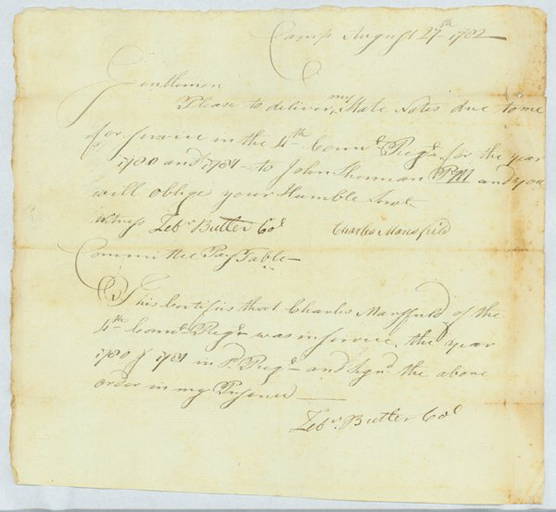 Camp August 27th 1782
Gentlemen
Please to deliver my State Notes due to me
for service in the 4th Connt Regt for the year
1780 and 1781 to John Sherman P M and you
will oblige your Humble Servt
witness Zebn Butler Col Charles Mansfield
Committee Pay Table
This Certifies that Charles Mansfield of the
4th Connt Regt was in service the year
1780 & 1781 in sd Regt and Signd the above
order in my Presence
Zebn Butler Col